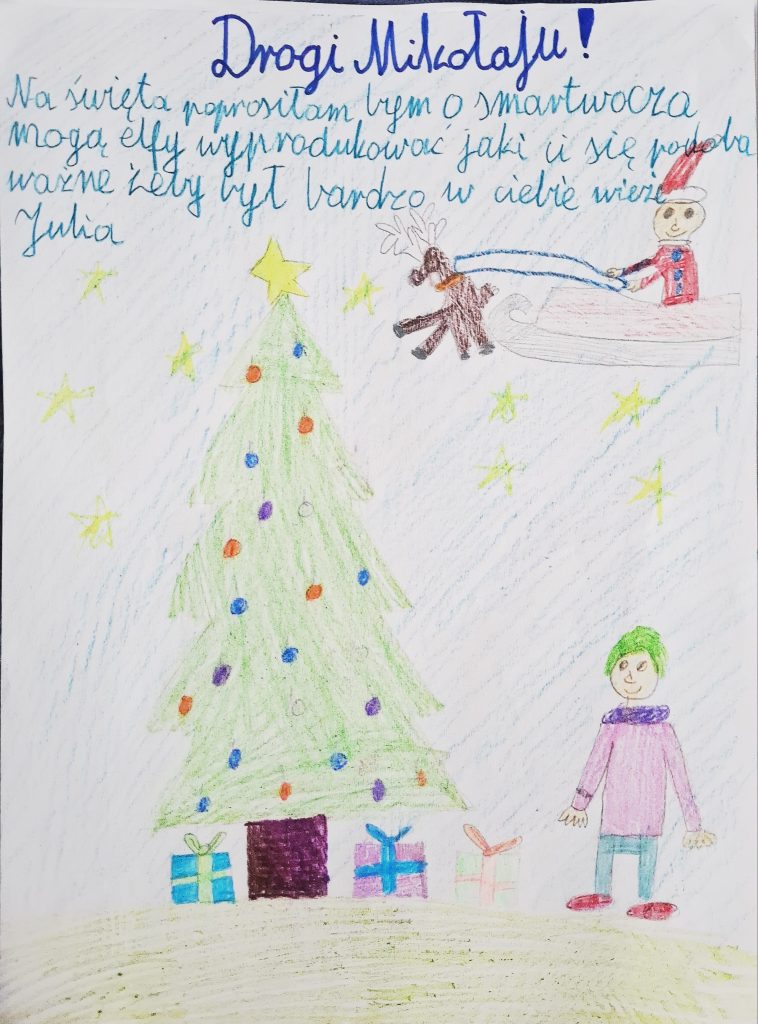 Drogi Mikołaju!
Na święta poprosiłam bym o smartwocza
mogą elfy wyprodukować jaki ci się podoba
ważne żeby był bardzo w ciebie wieże
Julia